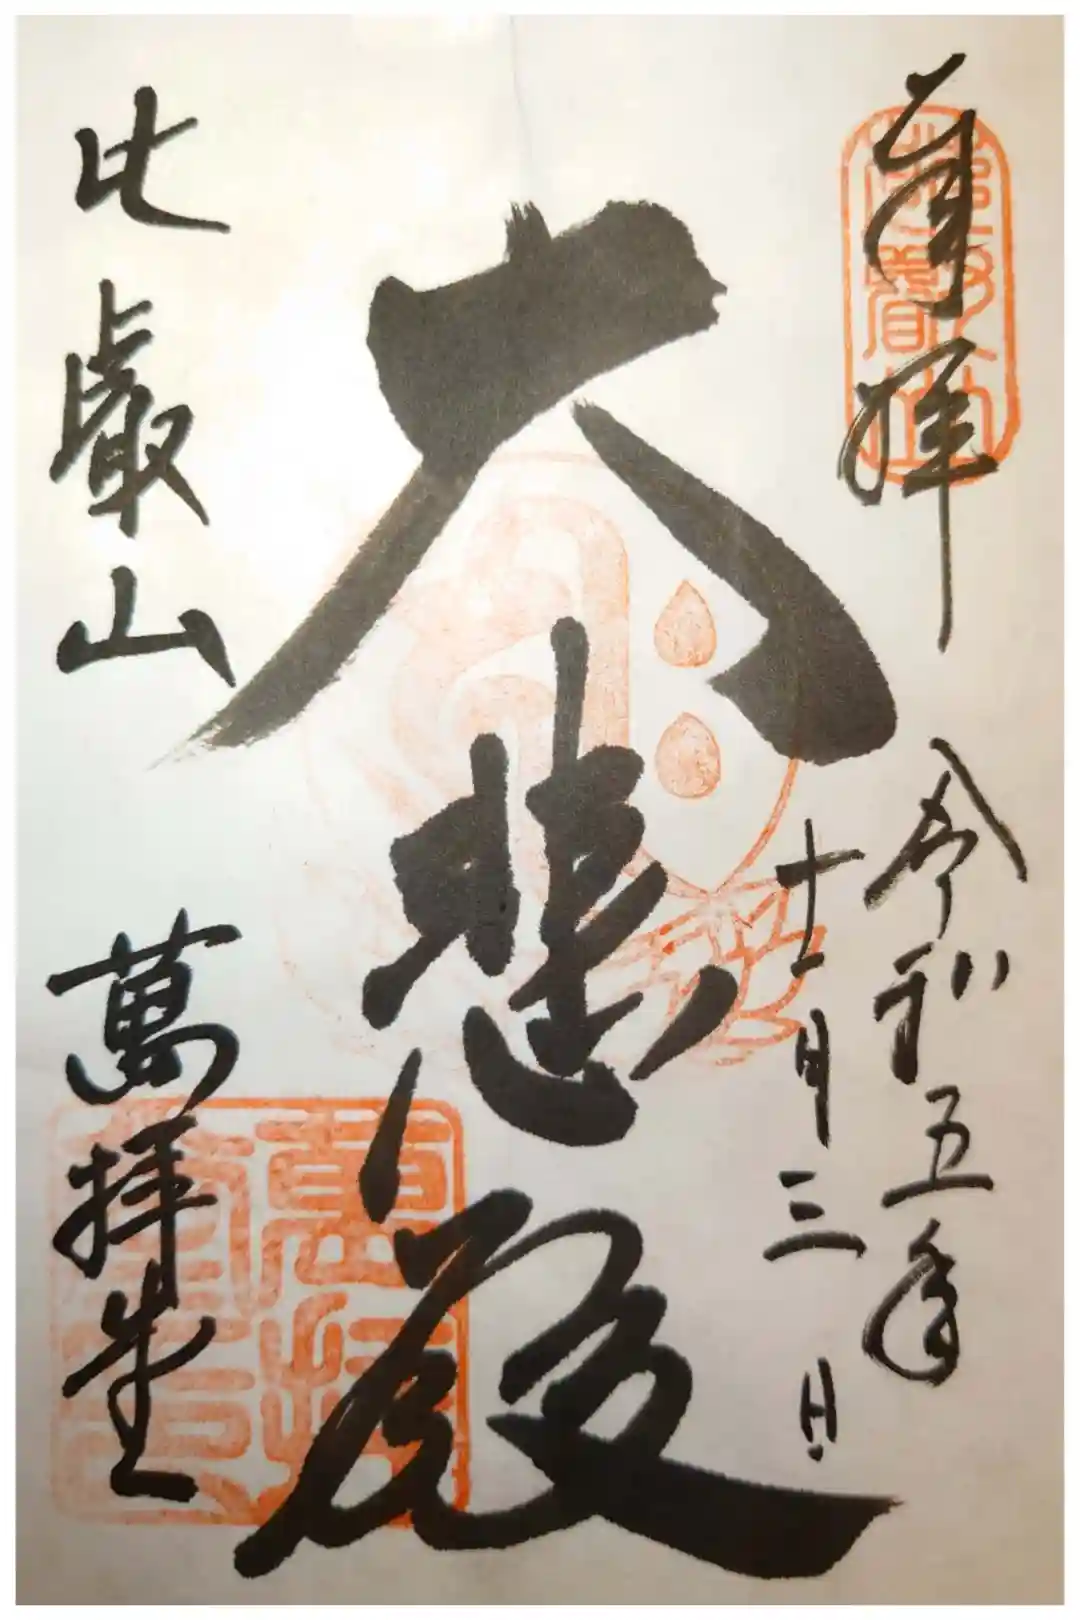 奉拝
令和五年
十一月三日
大悲殿
比叡山 萬拝堂